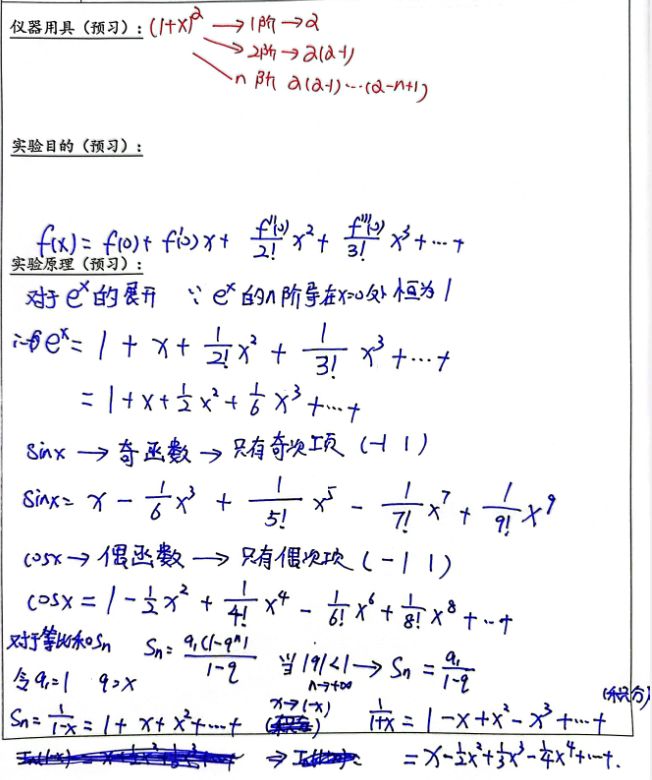 仪器用具（预习）: (1+x)^2 → 1阶 → 2
→ 2阶 → 2(2-1)
n阶 2(2-1)…(2-n+1)
实验目的（预习）:
f(x) = f(0) + f'(0)x + f''(0)/2! x² + f'''(0)/3! x³ + … +
实验原理（预习）:
对于 e^x 的展开 ∵ e^x 的n阶导在x=0处恒为1
e^x = 1 + x + 1/2! x² + 1/3! x³ + … +
= 1 + x + 1/2 x² + 1/6 x³ + … +
sinx → 奇函数 → 只有奇次项 (-1 1)
sinx = x - 1/6 x³ + 1/5! x⁵ - 1/7! x⁷ + 1/9! x⁹
cosx → 偶函数 → 只有偶次项 (-1 1)
cosx = 1 - 1/2 x² + 1/4! x⁴ - 1/6! x⁶ + 1/8! x⁸ + … +
对于等比和Sn Sn = a₁(1-q^n)/1-q 当|q|<1 → Sn = a₁/1-q
n→+∞
令a₁=1 q=x
x→(-x) (积分)
Sn = 1/1-x = 1 + x + x² + … + 1/1+x = 1 - x + x² - x³ + … +
⇒ = x - 1/2 x² + 1/3 x³ - 1/4 x⁴ + … +.